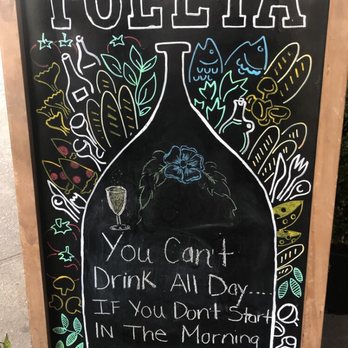 You Can't
Drink All Day....
IF You Don't Start
IN The Morning